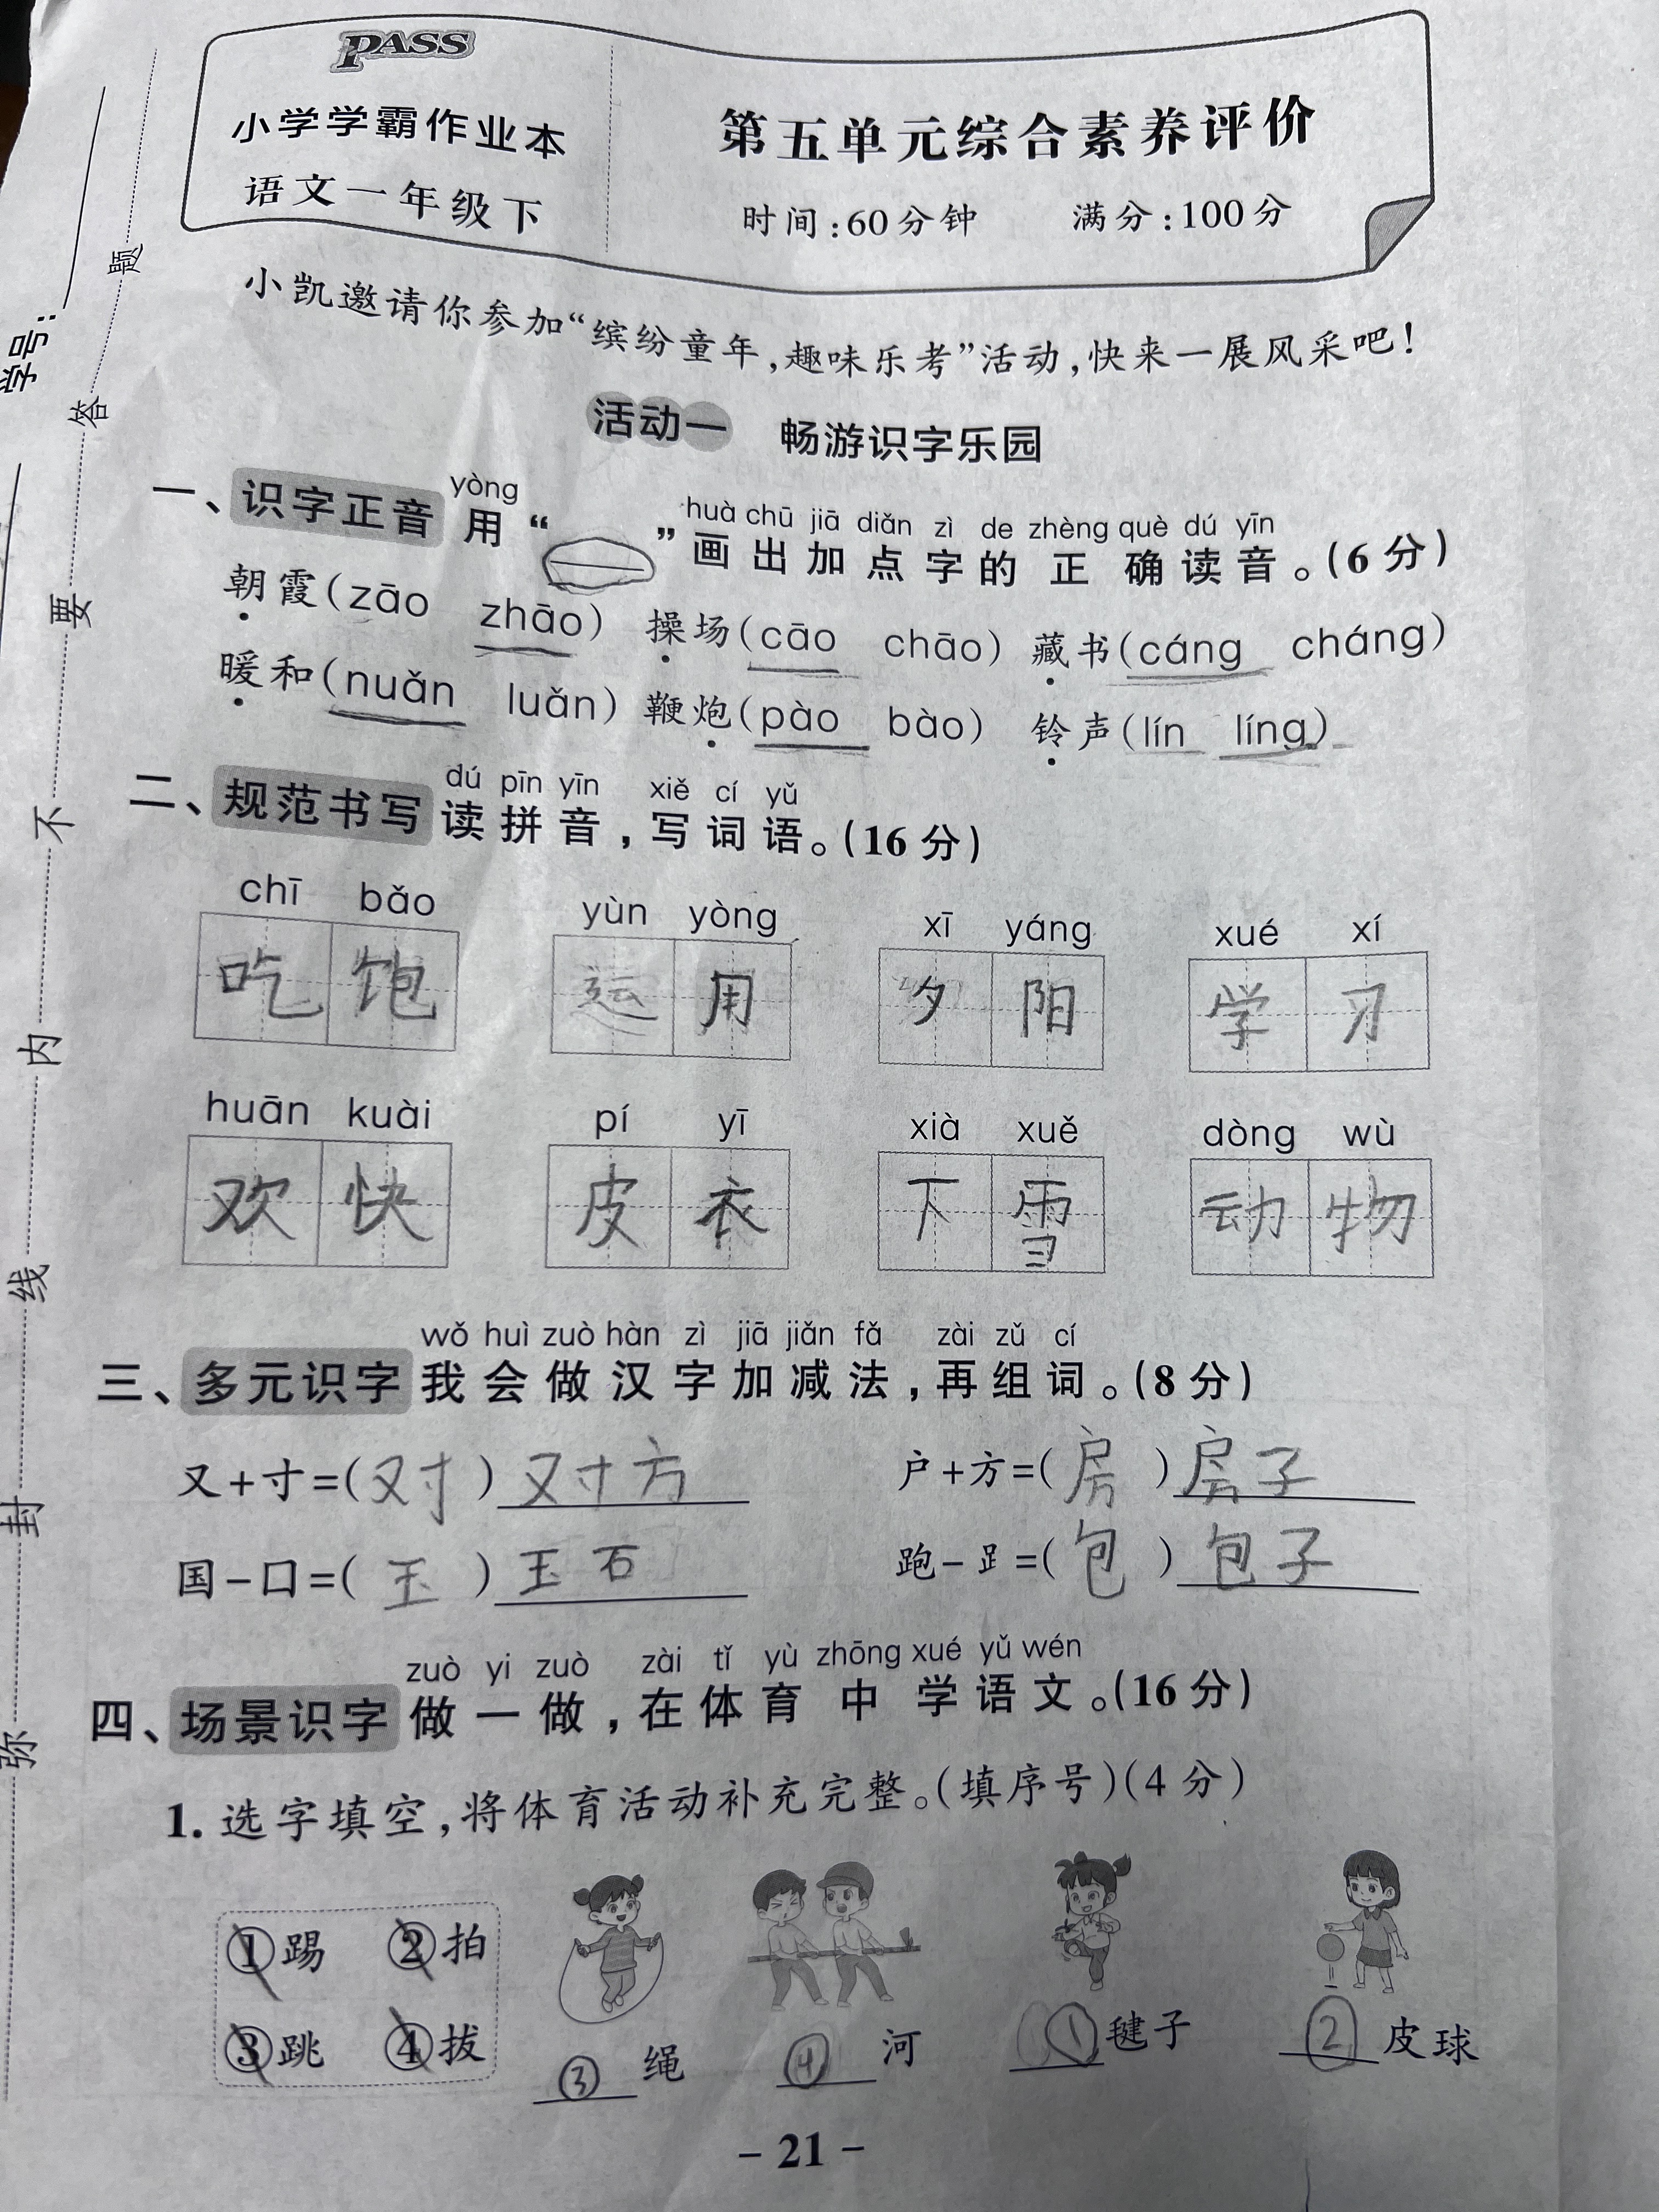 PASS
小学学霸作业本
语文一年级下
第五单元综合素养评价
时间:60分钟 满分:100分
学号:
弥 封 线 内 不 要 答 题
小凯邀请你参加“缤纷童年,趣味乐考”活动,快来一展风采吧!
活动一 畅游识字乐园
yòng huà chū jiā diǎn zì de zhèng què dú yīn
一、识字正音 用“ ”画出加点字的正确读音。(6分)
朝霞(zāo zhāo) 操场(cāo chāo) 藏书(cáng cháng)
暖和(nuǎn luǎn) 鞭炮(pào bào) 铃声(lín líng)
dú pīn yīn xiě cí yǔ
二、规范书写 读拼音,写词语。(16分)
chī bǎo yùn yòng xī yáng xué xí
吃饱 运用 夕阳 学习
huān kuài pí yī xià xuě dòng wù
欢快 皮衣 下雪 动物
wǒ huì zuò hàn zì jiā jiǎn fǎ zài zǔ cí
三、多元识字 我会做汉字加减法,再组词。(8分)
又+寸=(对)对方 户+方=(房)房子
国-口=(玉)玉石 跑-⻊=(包)包子
zuò yi zuò zài tǐ yù zhōng xué yǔ wén
四、场景识字 做一做,在体育中学语文。(16分)
1. 选字填空,将体育活动补充完整。(填序号)(4分)
①踢 ②拍
③跳 ④拔
③绳 ④河 ①毽子 ②皮球
- 21 -